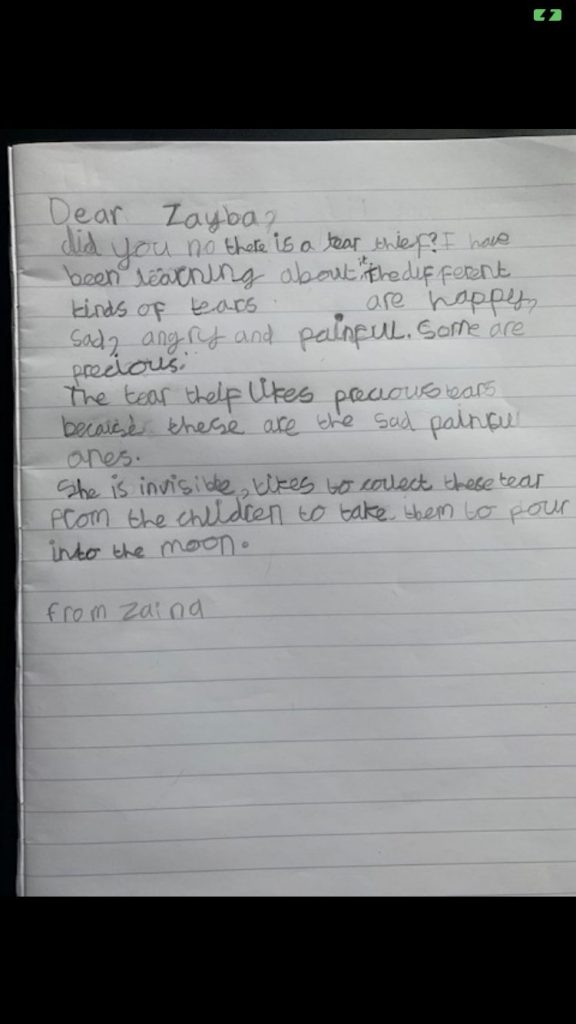 Dear Zayba,
did you no there is a tear thief? I have
been learning about it. the different
kinds of tears are happy,
sad, angry and painful. Some are
precious.
The tear theif likes precious tears
because these are the sad painful
ones.
She is invisible, likes to collect these tear
from the children to take them to pour
into the moon.
from zaina